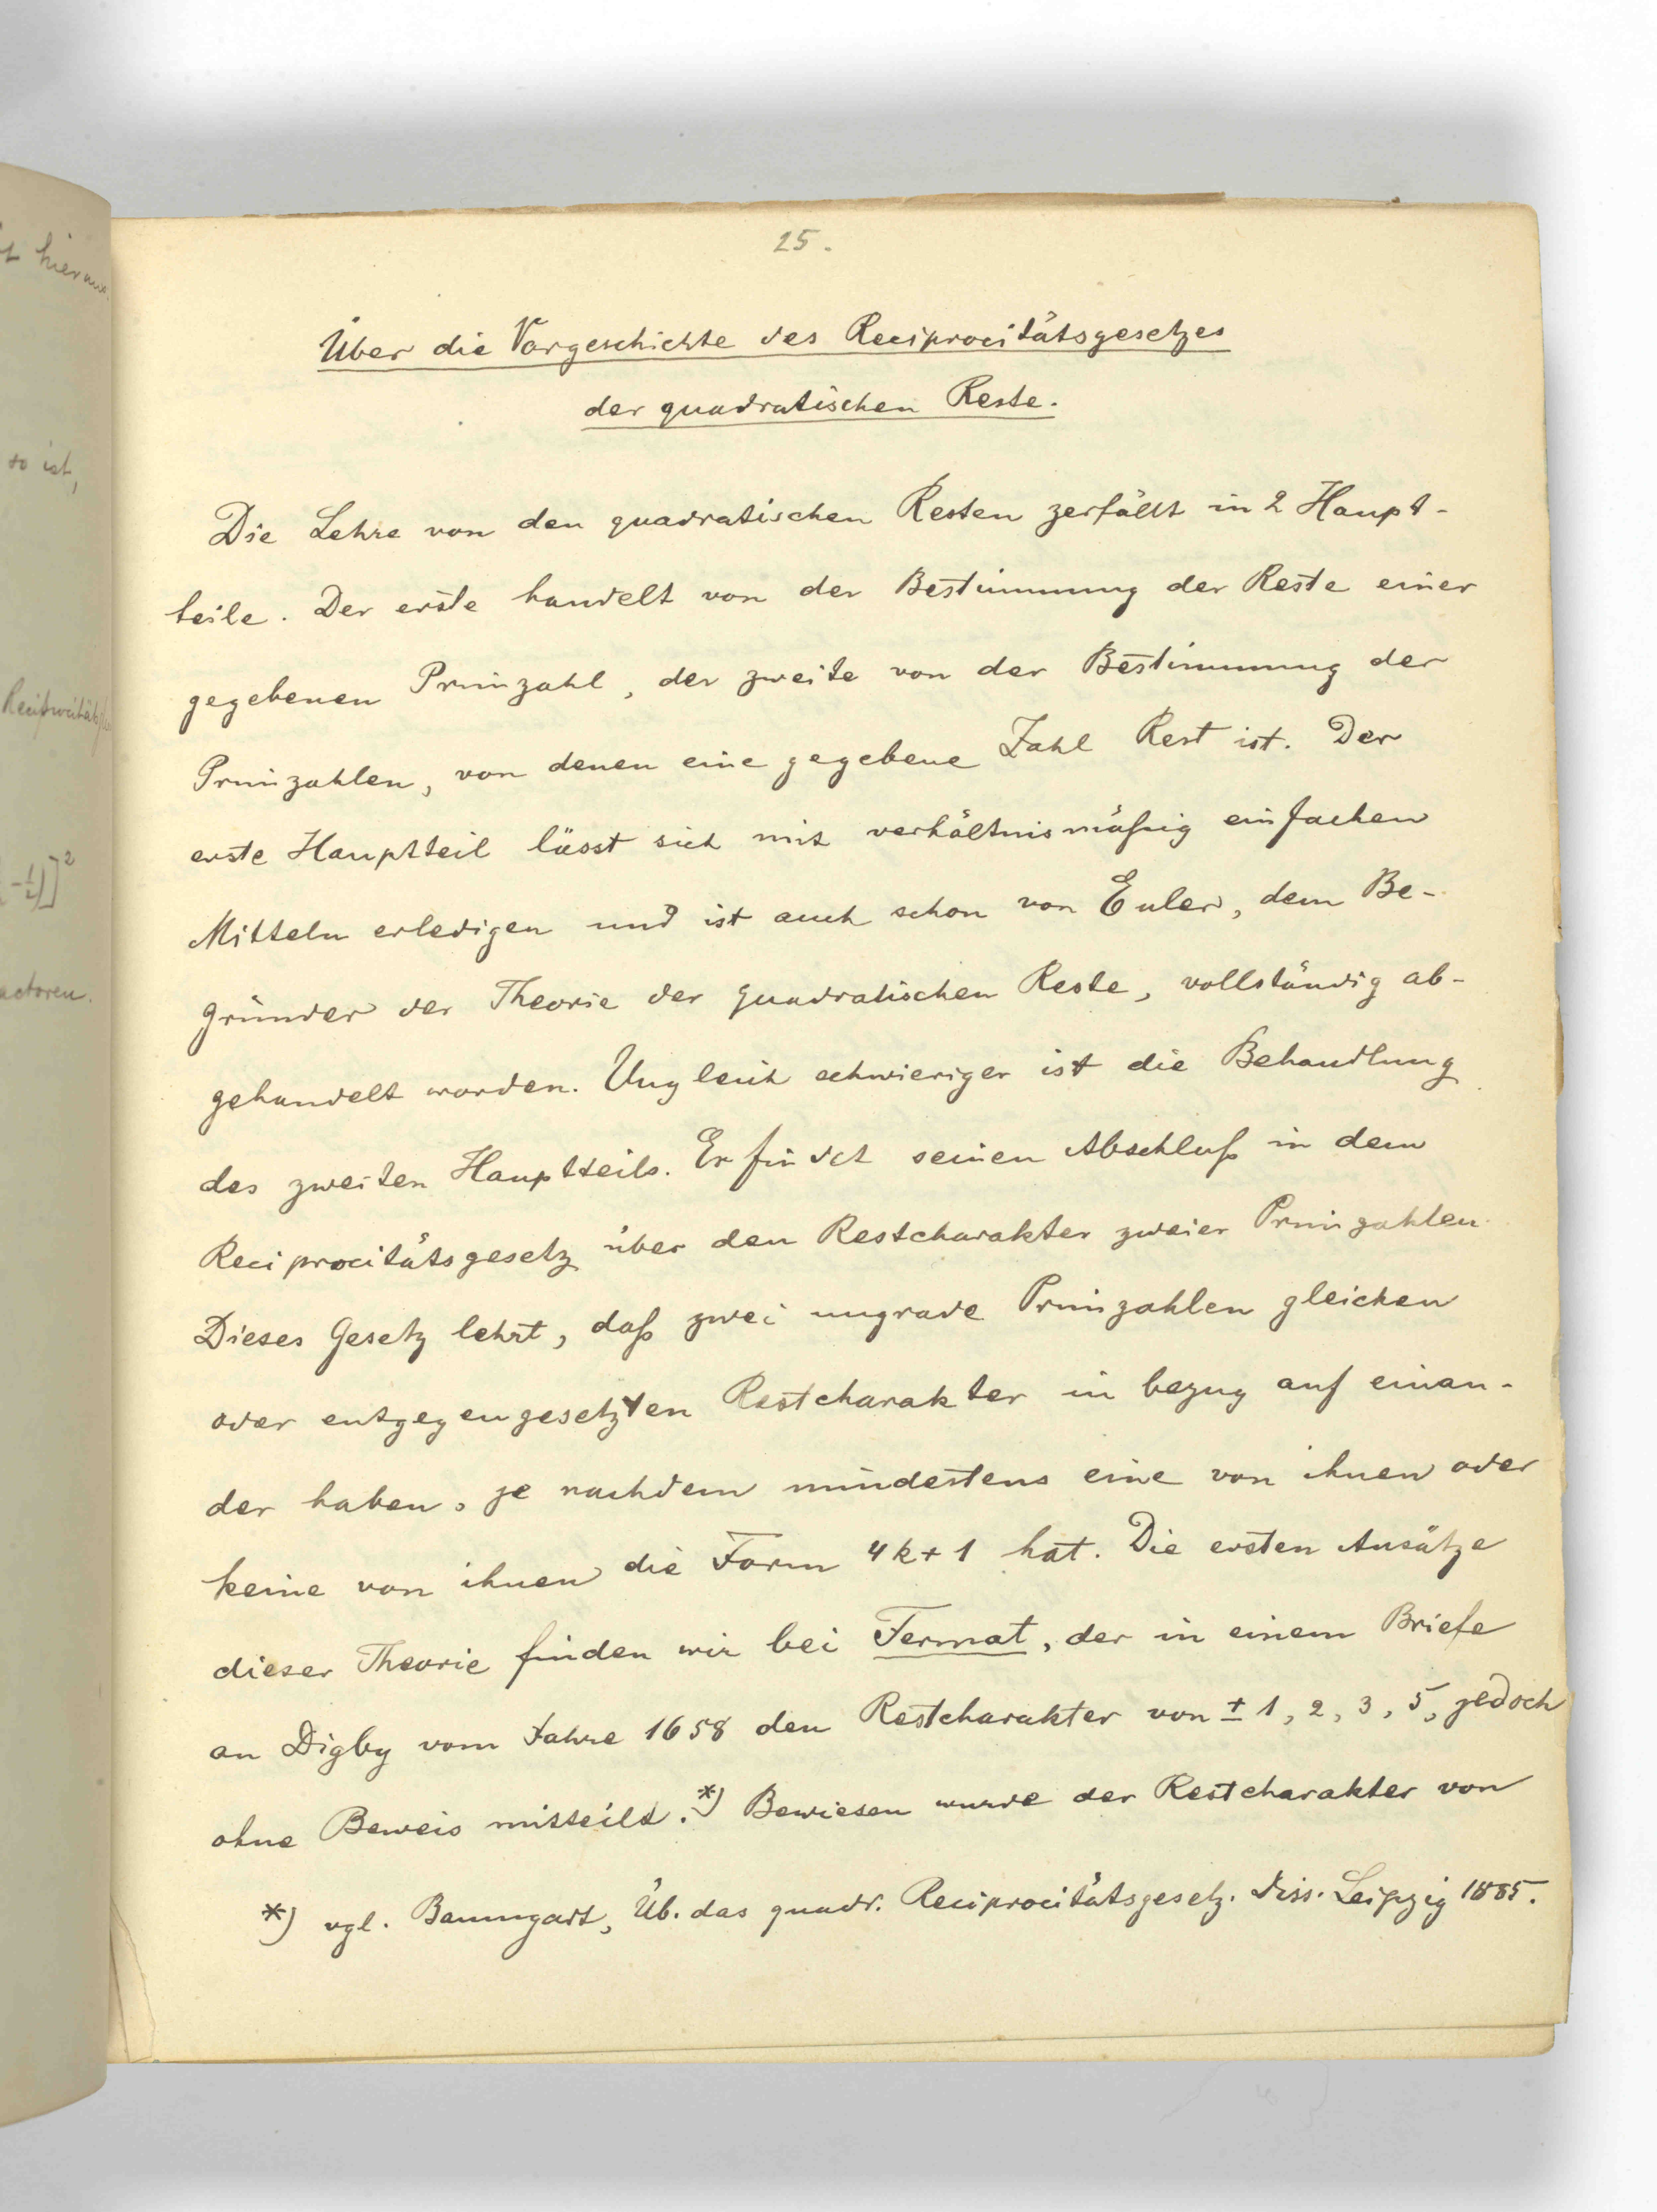 25.
Über die Vorgeschichte des Reciprocitätsgesetzes
der quadratischen Reste.
Die Lehre von den quadratischen Resten zerfällt in 2 Haupt-
teile. Der erste handelt von der Bestimmung der Reste einer
gegebenen Primzahl, der zweite von der Bestimmung der
Primzahlen, von denen eine gegebene Zahl Rest ist. Der
erste Hauptteil lässt sich mit verhältnismäßig einfachen
Mitteln erledigen und ist auch schon von Euler, dem Be-
gründer der Theorie der quadratischen Reste, vollständig ab-
gehandelt worden. Ungleich schwieriger ist die Behandlung
des zweiten Hauptteils. Er findet seinen Abschluß in dem
Reciprocitätsgesetz über den Restcharakter zweier Primzahlen.
Dieses Gesetz lehrt, daß zwei ungrade Primzahlen gleichen
oder entgegengesetzten Restcharakter in bezug auf einan-
der haben, je nachdem mindestens eine von ihnen oder
keine von ihnen die Form 4k+1 hat. Die ersten Ansätze
dieser Theorie finden wir bei Fermat, der in einem Briefe
an Digby vom Jahre 1658 den Restcharakter von ± 1, 2, 3, 5, jedoch
ohne Beweis mitteilt.*) Bewiesen wurde der Restcharakter von
*) vgl. Baumgart, Üb. das quadr. Reciprocitätsgesetz. Diss. Leipzig 1885.
so ist,
-1/2)]²
actoren.